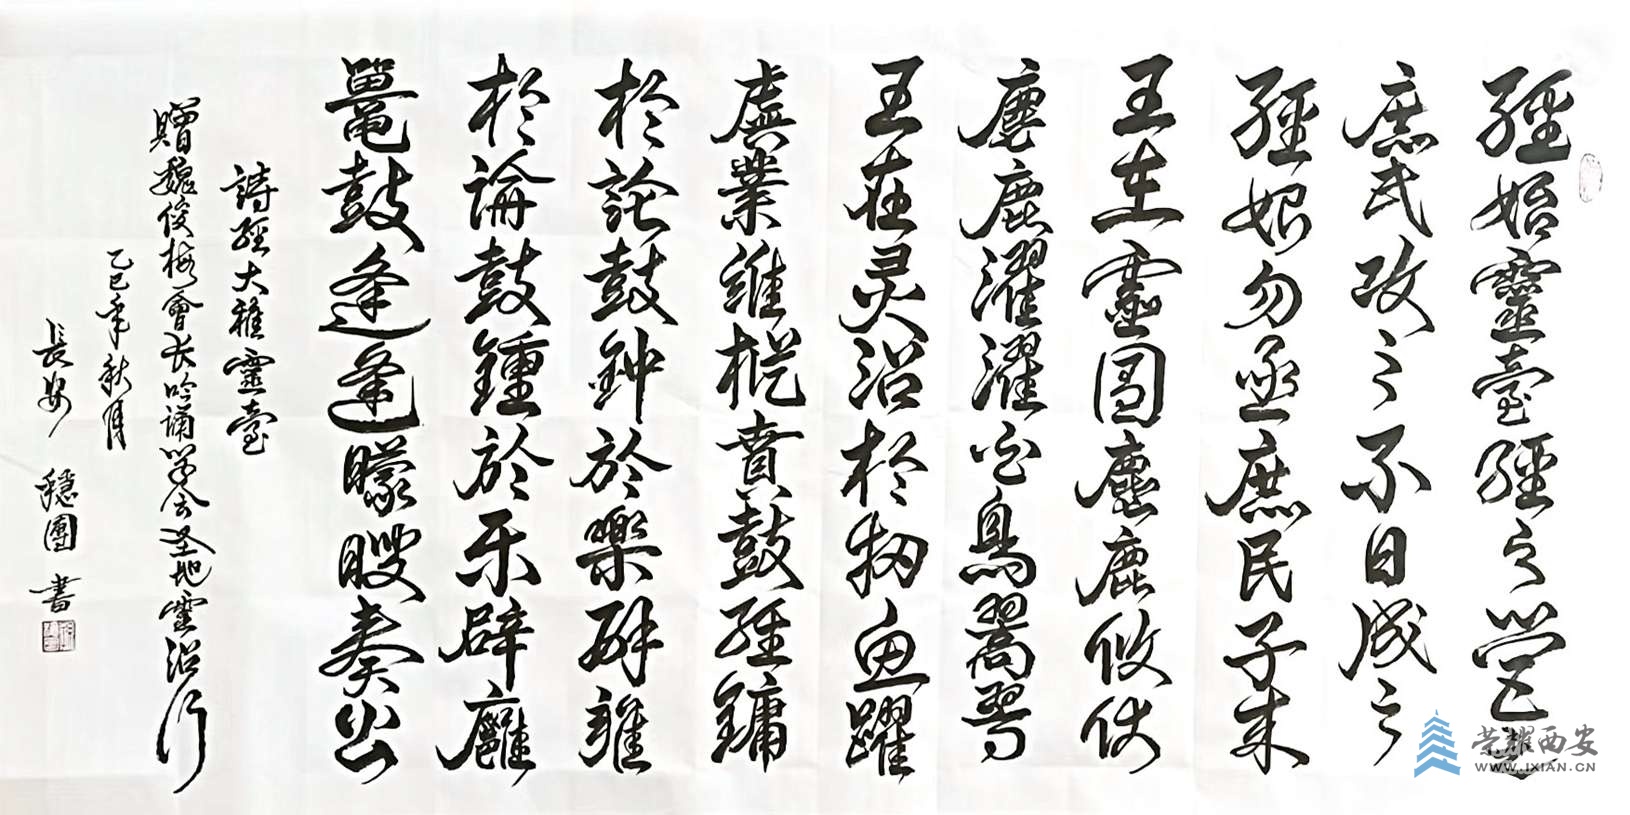 經始靈臺經之營之
庶民攻之不日成之
經始勿亟庶民子來
王在靈囿麀鹿攸伏
麀鹿濯濯白鳥翯翯
王在灵沼於牣魚躍
虡業維樅賁鼓維鏞
於論鼓鐘於樂辟雍
於論鼓鍾於乐辟廱
鼍鼓逢逢矇瞍奏公
詩經大雅靈臺
贈魏俊梅會长吟诵学会圣地灵沼行
乙巳年秋月
長安 穩團 書
荣耀西安
WWW.IXIAN.CN